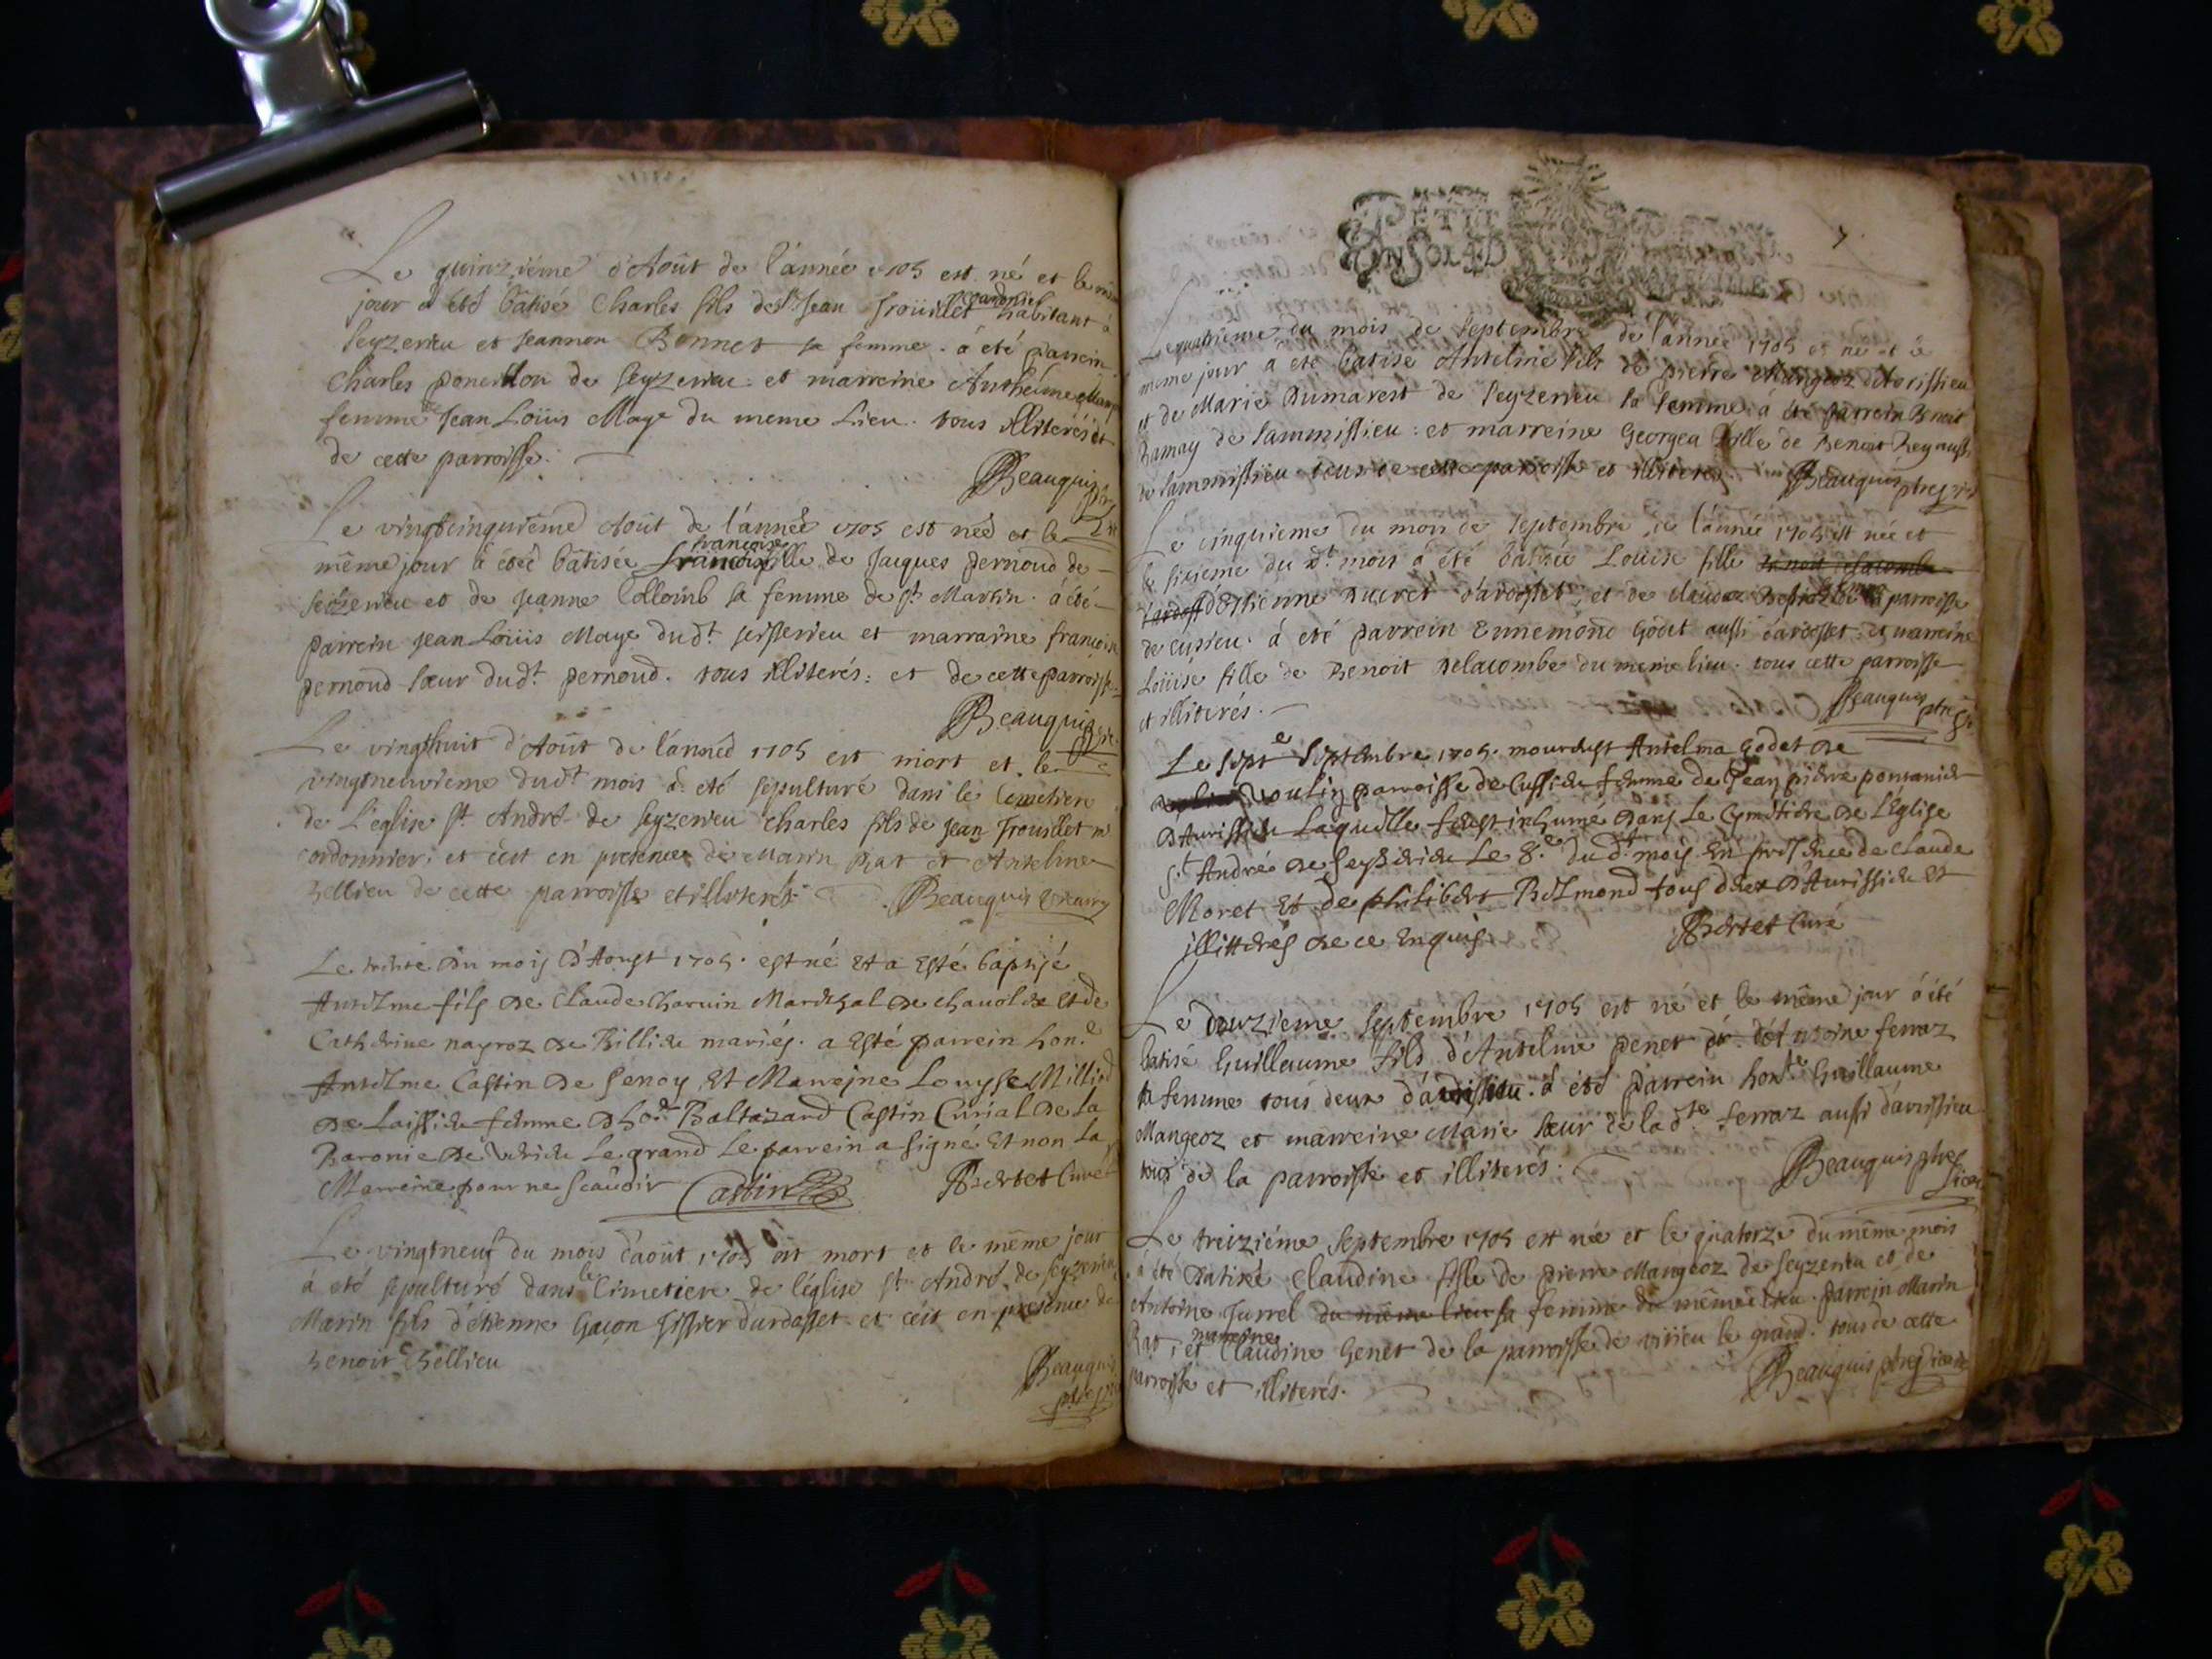 Le quinzième d'Août de l'année 1705 est né et le
jour a été batisé Charles fils de Sr Jean Trouillet cordonier habitant à
Seyzerieu et Jeannon Bonnet sa femme. a été parrein
Charles ponchon de Seyzerieu et marreine Anthelme
femme de Jean Loüis Maye du meme Lieu. tous illiterés et
de cette parroisse.
Beauquis
Le vingtcinquième Août de l'année 1705 est née et le
même jour a été bâtisée françoise fille de Jacques pernoud de
Seizerieu et de Jeanne Collomb sa femme de St Martin. a été
parrein Jean Loüis Maye dudt Seisserieu et marraine françoise
pernoud sœur dudt pernoud. tous illiterés: et de cette parroisse.
Beauquis
Le vingthuit d'Août de l'année 1705 est mort et le
vingtneuvieme dudt mois a été sepulturé dans le Cimetiere
de L'église St André de Seyzerieu Charles fils de Jean Trouillet
cordonnier, et c'est en presence de Marin Rat et Antelme
Bellieu de cette parroisse et illiterés. Beauquis Vicaire
Le trente du mois d'Aoust 1705. est né et a esté baptisé
Antelme fils de Claude Charvin Mareschal de chavolex et de
Catherine nagroz de Billieu mariés. a esté parrein hon.e
Antelme Castin de Senoy Et Marrejne Louyse Milliod
de Laissieu femme d'ho.e Baltazard Castin Curial de la
Baronie de Virieu Le grand Le parrein a signé Et non La
Marreine pour ne scauoir Castin Bertet Curé
Le vingtneuf du mois d'août 1705 est mort et le même jour
à été sepulturé dans le Cimetiere de l'église St André de Seyzerieu
Marin fils d'étienne Gaçon tissier d'ardosset et c'est en presence de
Benoit Bellieu
Beauquis
PETIT
Le quatrieme du mois de Septembre de l'année 1705 est né et le
meme jour a été batisé Antelme fils de pierre Mangeoz d'Avrissieu
et de Marie Dumarest de Seyzerieu sa femme. à été parrein Benoit
Ramay de Sammissieu: et marreine Georgea fille de Benoit Reynaud
de Sammissieu tous de cette parroisse et illiterés. Beauquis ptre
Le cinquieme du mois de Septembre de l'année 1705 est née et
le sixieme du dt mois a été batisée Louise fille
d'Estienne Ducret d'ardosset, et de Claudaz parroisse
de Cusieu. à été parrein Ennemond Godet aussi d'ardosset: et marreine
Loüise fille de Benoit delacombe du meme lieu. tous cette parroisse
et illiterés. Beauquis ptre
Le Sept.e Septembre 1705. mourust Antelma Godet de
Voulin parroisse de Cussieu femme de Jean pierre ponsanier
d'Aurissieu Laquelle feust inhumé dans Le Cymetiere de L'Eglise
St André de Seysserieu Le 8.e du dt mois En presence de Claude
Moret Et de philibert Belmond tous deux d'Aurissieu et
illitterés de ce Enquis. Bertet Curé
Le douzieme Septembre 1705 est né et le même jour a été
batisé Guillaume fils d'Antelme penet et d'Antoine ferraz
sa femme tous deux d'avrissieu. à été parrein honte Guillaume
Mangeoz et marreine Marie sœur de la dte ferraz aussi d'avrissieu
tous de la parroisse et illiterés. Beauquis ptre
Vicaire
Le treizième Septembre 1705 est née et le quatorze du même mois
a été Batisée Claudine fille de pierre Mangeoz de Seyzerieu et de
Antoine Jurrel du même lieu sa femme du même lieu. parrejn Marin
Rat, et marreine Claudine Genet de la parroisse de virieu le grand. tous de cette
parroisse et illiterés. Beauquis ptre Vicaire